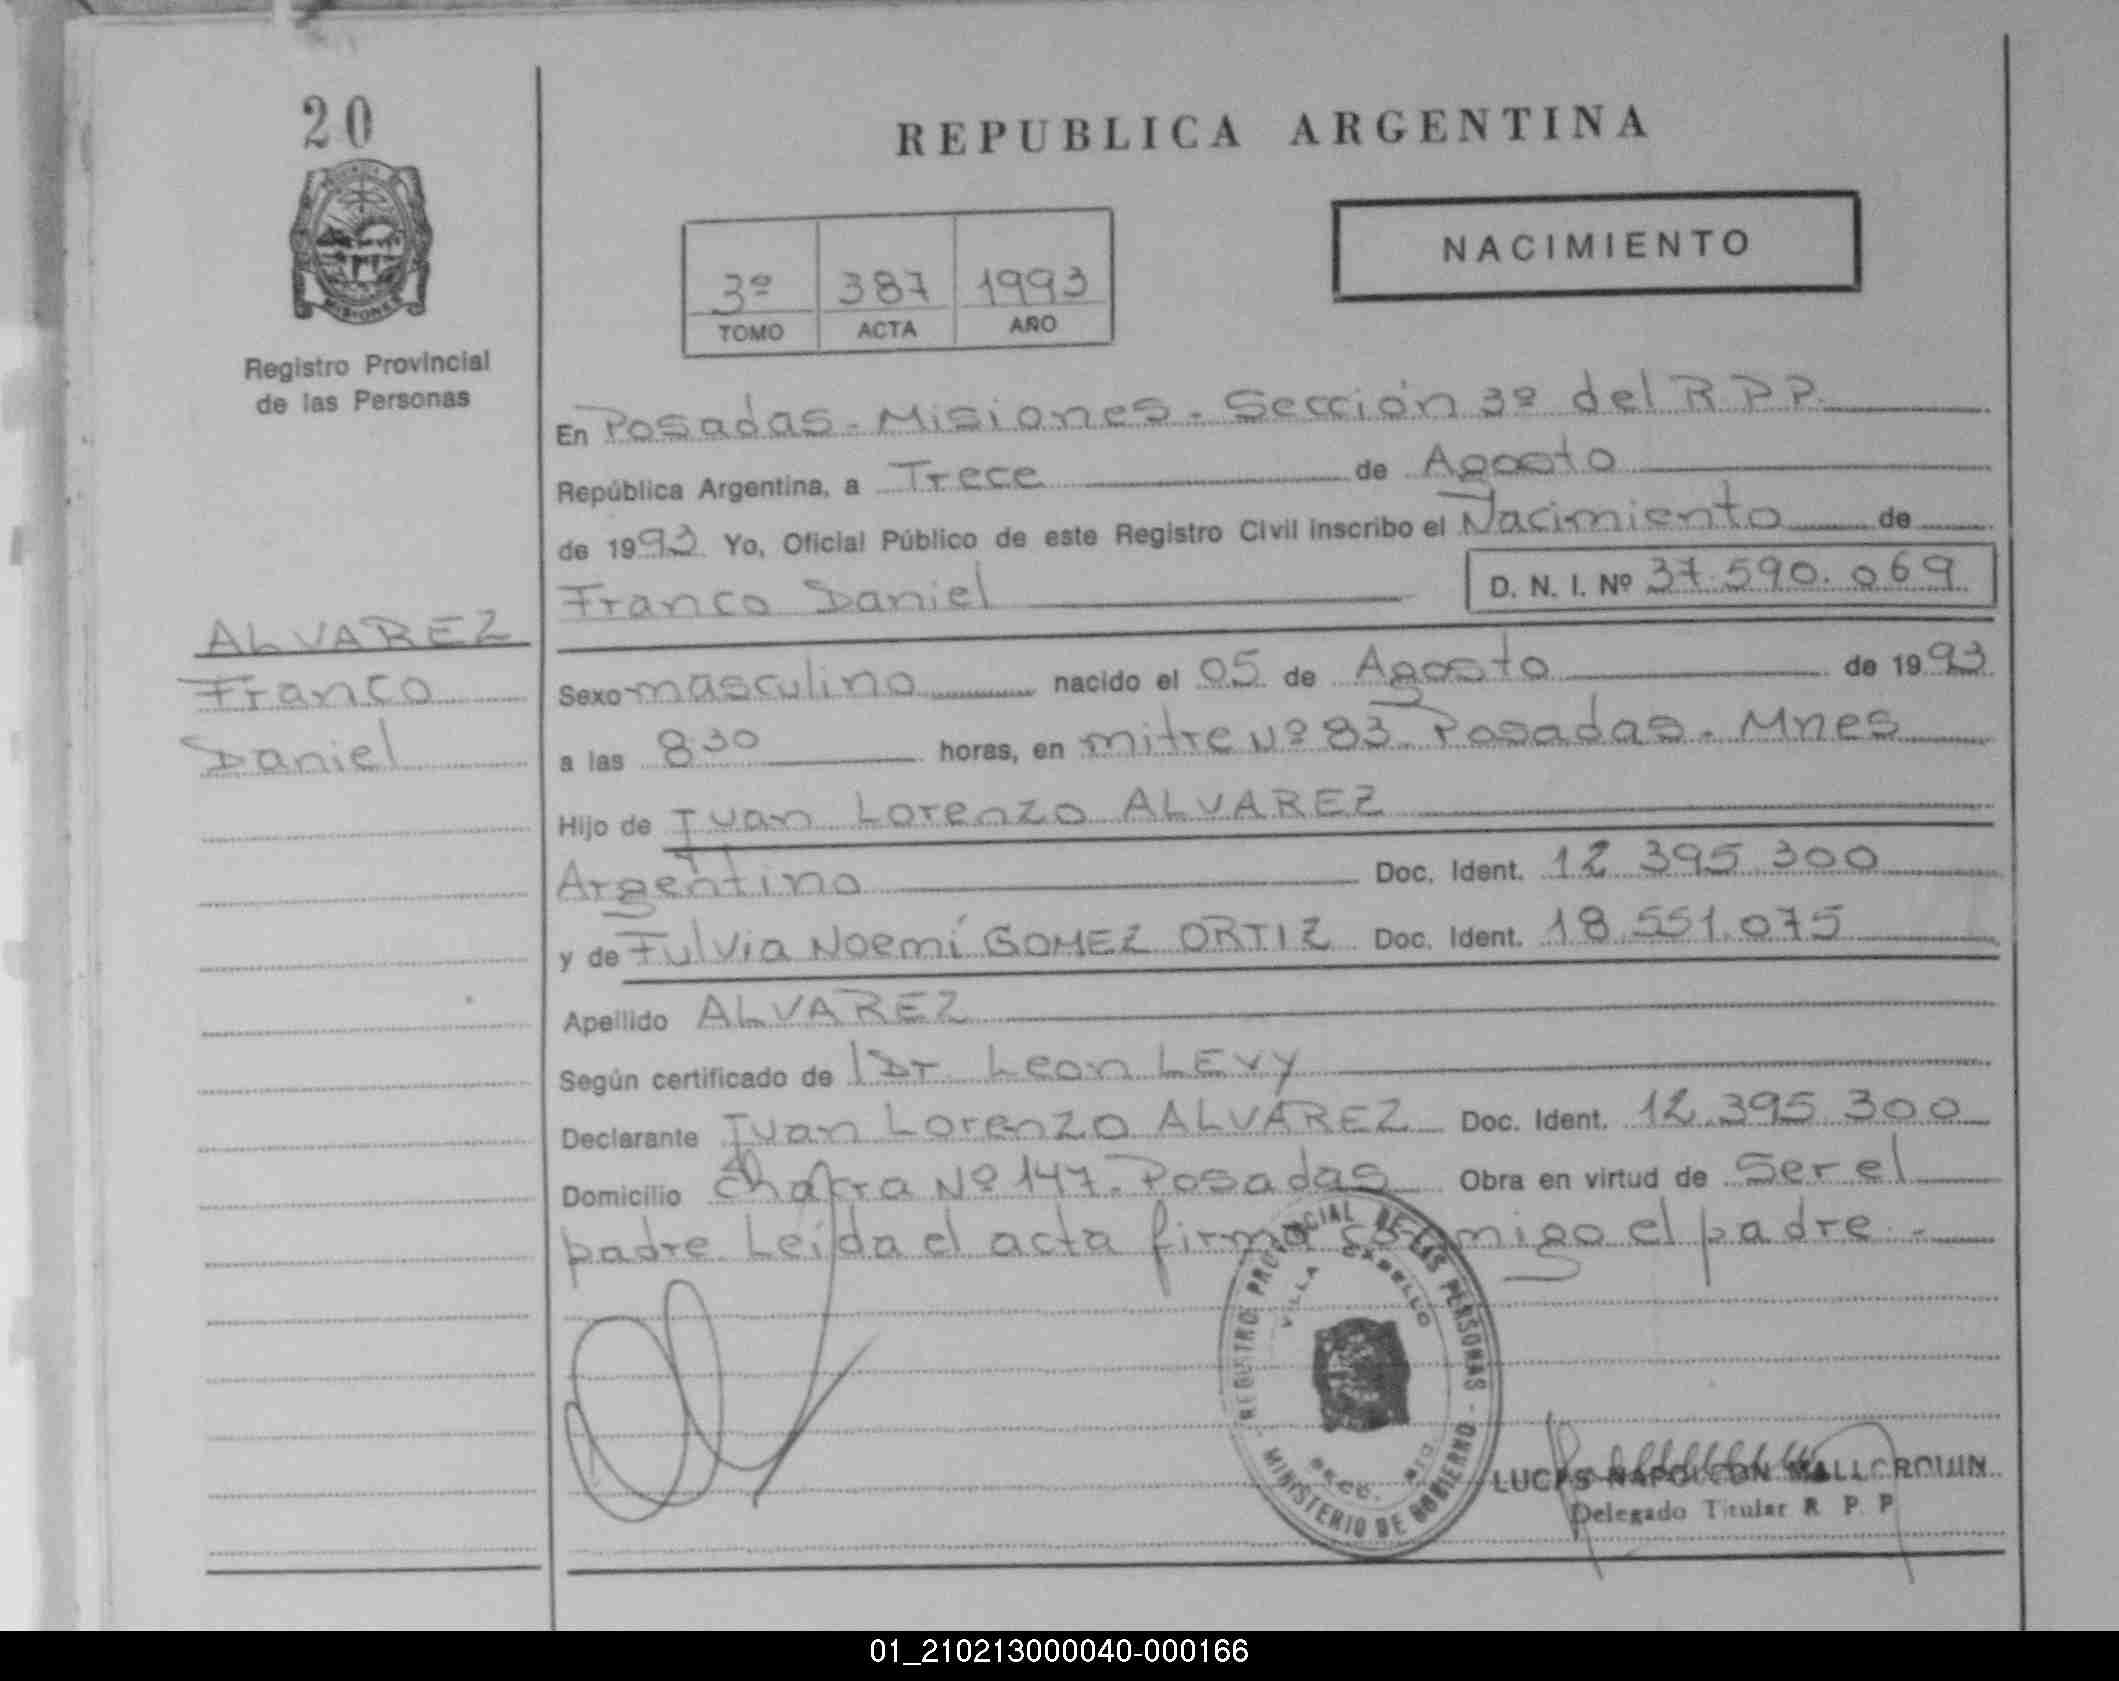 20
REPUBLICA ARGENTINA
NACIMIENTO
3º 387 1993
TOMO ACTA AÑO
Registro Provincial
de las Personas
En Posadas - Misiones - Sección 3º del R P P.
República Argentina, a Trece de Agosto
de 1993 Yo, Oficial Público de este Registro Civil inscribo el Nacimiento de
Franco Daniel D. N. I. Nº 37.590.069
ALVAREZ
Franco
Daniel
Sexo masculino nacido el 05 de Agosto de 1993
a las 8 30 horas, en mitre Nº 83 Posadas - Mnes
Hijo de Juan Lorenzo ALVAREZ
Argentino Doc. Ident. 12 395 300
y de Fulvia Noemí GOMEZ ORTIZ Doc. Ident. 18 551.075
Apellido ALVAREZ
Según certificado de Dr Leon LEVY
Declarante Juan Lorenzo ALVAREZ Doc. Ident. 12.395.300
Domicilio Chakra Nº 147. Posadas Obra en virtud de Ser el
padre Leida el acta firma conmigo el padre -
REGISTRO PROVINCIAL DE LAS PERSONAS - MINISTERIO DE GOBIERNO -
VILLA CABELLO
LUCAS NAPOLEON MALLORQUIN
Delegado Titular R P. P
01_210213000040-000166